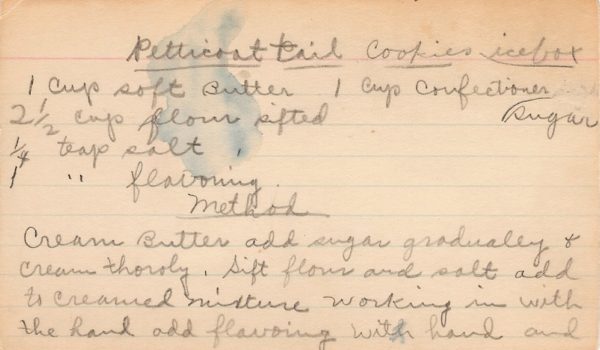 Petticoat tail Cookies icebox
1 cup soft Butter 1 cup Confectioner
Sugar
2 1/2 cup flour sifted
1/4 teap salt
1 " flavoring
Method
Cream Butter add sugar gradualey &
cream thoroly. Sift flour and salt add
to creamed mixture working in with
the hand add flavoring with hand and